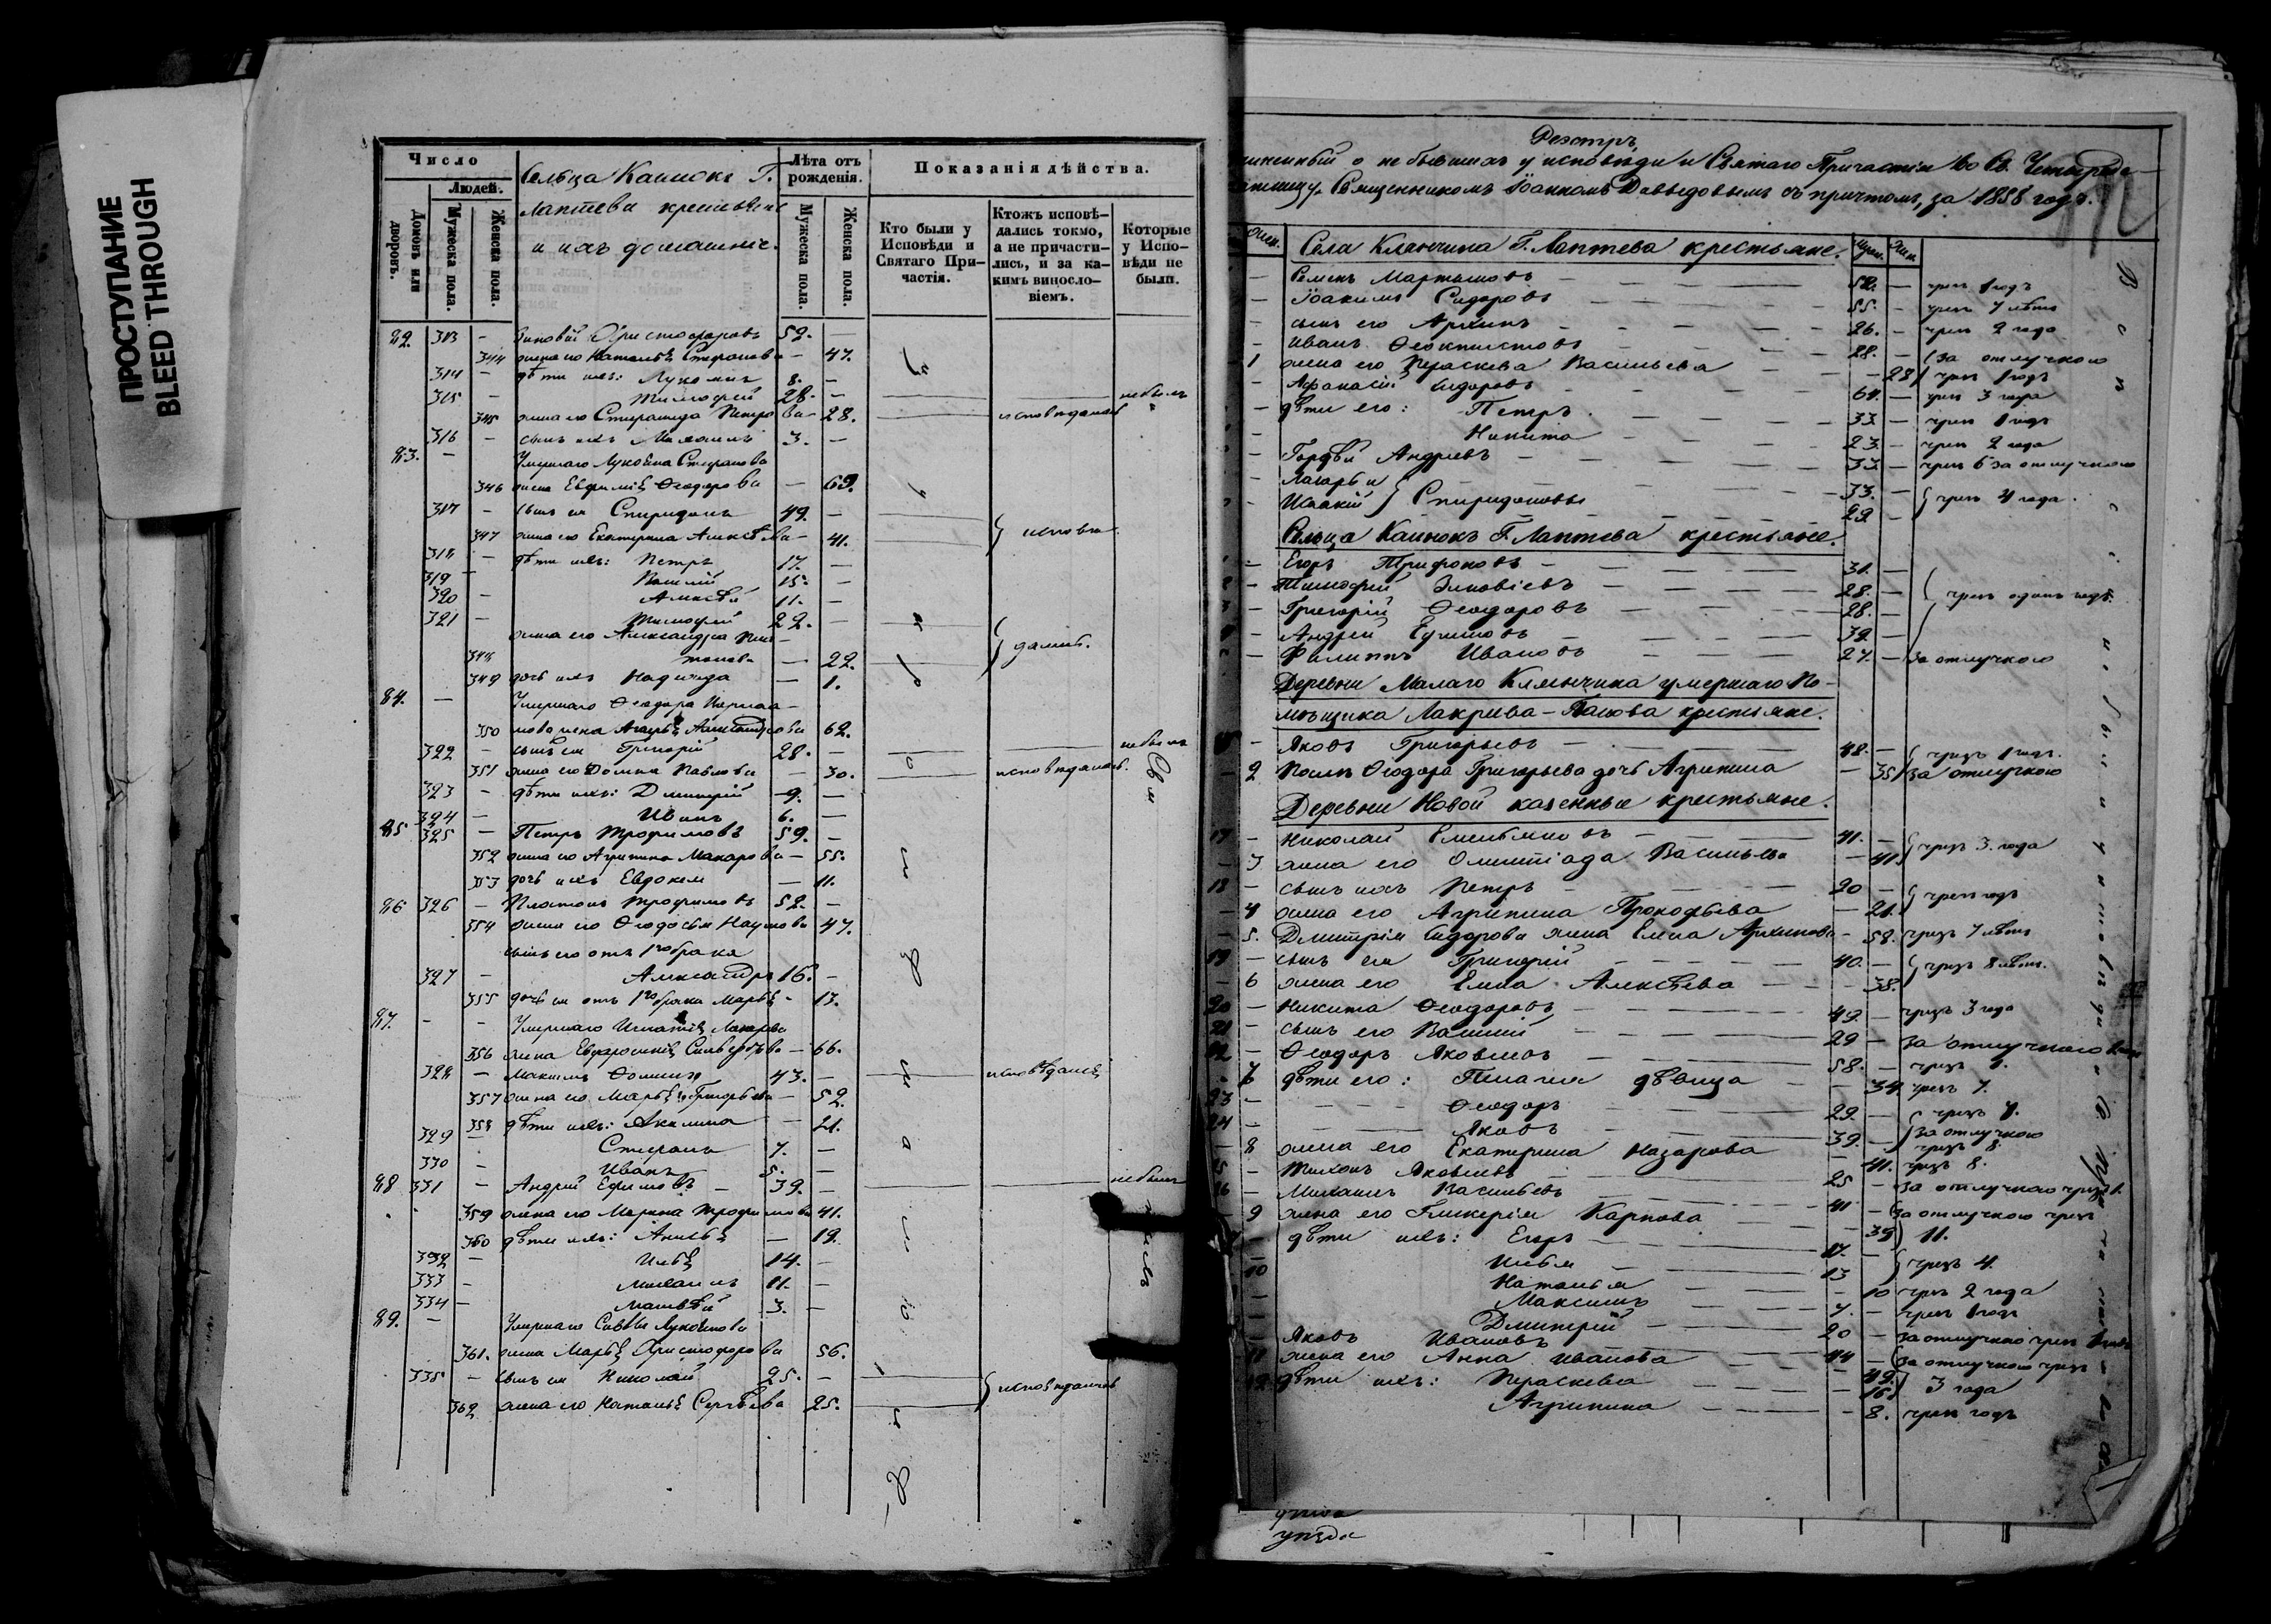 ПРОСТУПАНИЕ
BLEED THROUGH
Число
Людей.
Домовъ или дворовъ.
Мужеска пола.
Женска пола.
Сельца Каинокъ Г.
Лаптева крестьяне
и ихъ домашніе.
Лѣта отъ рожденія.
Мужеска пола.
Женска пола.
Показанія дѣйства.
Кто были у Исповѣди и Святаго Причастія.
Ктожъ исповѣдались токмо, а не причастились, и за какимъ винословіемъ.
Которые у Исповѣди не были.
82. 313 - Зиновій Христофоровъ 52. —
344 жена его Наталья Стефанова - 47.
314 - дѣти ихъ: Лукоянъ 8. -
315 - Тимофей 28. - небылъ
345 жена его Степанида Петрова - 28. исповѣдалась
316 - сынъ ихъ Михаилъ 3. -
83. - Умершаго Лукояна Стефанова
346 жена Евфимія Ѳеодорова — 69.
317 - сынъ ея Спиридонъ 49. -
347 жена его Екатерина Алексѣева - 41. исповѣ
318 - дѣти ихъ: Петръ 17. —
319 - Василій 15. -
320 - Алексѣй 11. -
321 - Тимофей 22. -
жена его Александра Пла-
348 тонова — 22. дались.
349 дочь ихъ Надежда — 1.
84. — Умершаго Ѳеодора
350 жена Агафья Александрова 62.
322 - сынъ ея Григорій 28. - небылъ
351 жена его Домна Павлова — 30. исповѣдалась.
323 - дѣти ихъ: Димитрій 9. —
324 - Иванъ 6. —
85 325 - Петръ Трофимовъ 59. -
352 жена его Агрипина Макарова - 55.
353 дочь ихъ Евдокия — 11.
86 326 - Платонъ Трофимовъ 52. -
354 жена его Ѳеодосья Наумова 47.
сынъ его отъ 1го брака
327 - Александръ 16. -
355 дочь ея отъ 1го брака Марья - 13.
87. - - Умершаго Игнатія Захарова
356 жена Евфросинія Сильвестрова - 66.
328 - Максимъ Ѳоминъ 43. - исповѣдался
357 жена его Марья Григорьева — 52.
358 дѣти ихъ: Акилина — 21.
329 - Стефанъ 7. -
330 - Иванъ 5. -
88 331 - Андрей Ефимовъ — 39. - небылъ
359 жена его Марина Трофимова 41.
360 дѣти ихъ: Анисья — 19.
332 - Илья 14. -
333 - Михаилъ 11. -
334 - Матвѣй 3. -
89. - Умершаго Саввы Лукоянова
361. жена Марья Христофорова 56.
335 - сынъ ея Николай 25. -
362 жена его Наталья Сергѣева 25. исповѣдались
Реэстръ,
о не бывшихъ у исповѣди и Святаго Причастія во Св. Четыредe-
Священникомъ Іоанномъ Давыдовымъ съ причтомъ, за 1858 годъ.
Села Клянчина Г. Лаптева крестьяне.
- Семенъ Мартыновъ 52. — чрезъ 1 годъ
- Іоакимъ Сидоровъ 55. - чрезъ 7 лѣтъ
- сынъ его Архипъ 26. - чрезъ 2 года
- Иванъ Ѳеоктистовъ 28. - за отлучкою
1 жена его Параскева Васильева - 28 чрезъ 1 годъ
- Афанасій Сидоровъ 64. - чрез 3 года
- дѣти его: Петръ 33 - чрезъ 1 годъ
- Никита 23 - чрезъ 2 года
- Гордѣй Андреевъ 33. - чрезъ 6 за отлучкою
- Лазарь и 33. —
- Исаакій Спиридоновы 29. - чрезъ 4 года.
Сельца Каинокъ Г. Лаптева крестьяне.
1 - Егоръ Трифоновъ 31. —
2 - Тимофей Зиновіевъ 28. — чрезъ одинъ годъ.
3 - Григорій Ѳеодоровъ 28. —
4 - Андрей Ефимовъ 39. —
- Филиппъ Ивановъ 27. — за отлучкою
Деревни Малаго Клянчина умершаго По-
мѣщика крестьяне.
- Яковъ Григорьевъ 48. - чрезъ 1 годъ.
- 2 Ѳеодора Григорьева дочь Агрипина — 35 за отлучкою
Деревни Новой казенные крестьяне.
17 - Николай Емельяновъ 41. -
- 3 жена его Олимпіада Васильева — 41 чрезъ 3 года
18 - сынъ ихъ Петръ 20 -
- 4 жена его Агрипина Прокофьева — 21. чрезъ годъ
- 5. Дмитрія Сидорова жена Елена Архипова - 58. чрезъ 7 лѣтъ
19 - сынъ ея Григорій 40. - чрезъ 8 лѣтъ.
- 6 жена его Елена Алексѣева - 38.
20 - Никита Ѳеодоровъ 49. - чрезъ 3 года
21 - сынъ его Василій 29 - за отлучкою
22 - Ѳеодоръ Яковлевъ 58. - чрезъ 7.
- 7 дѣти его: Пелагея дѣвица - 34. чрезъ 7.
23 - Ѳеодоръ 29. - чрезъ 7.
24 - Яковъ 39. - за отлучкою чрезъ 8.
- 8 жена его Екатерина Назарова - 41. чрезъ 8.
25 - Тихонъ Яковлевъ 25 - за отлучкою чрезъ
26 - Михаилъ Васильевъ 41 - за отлучкою чрезъ
- 9 жена его Гликерія Карпова - 39 11.
дѣти ихъ: Егоръ 17. -
Илья 13 чрезъ 4.
10 Наталья - 10 чрезъ 2 года
Максимъ 7. - чрезъ 1 годъ
Дмитрій 20 - за отлучкою чрезъ
- Яковъ Ивановъ 44 - за отлучкою чрезъ
11 жена его Анна Иванова - 49. 3 года
дѣти ихъ: Параскева - 16.
Агрипина - 8. чрезъ годъ
уѣзда